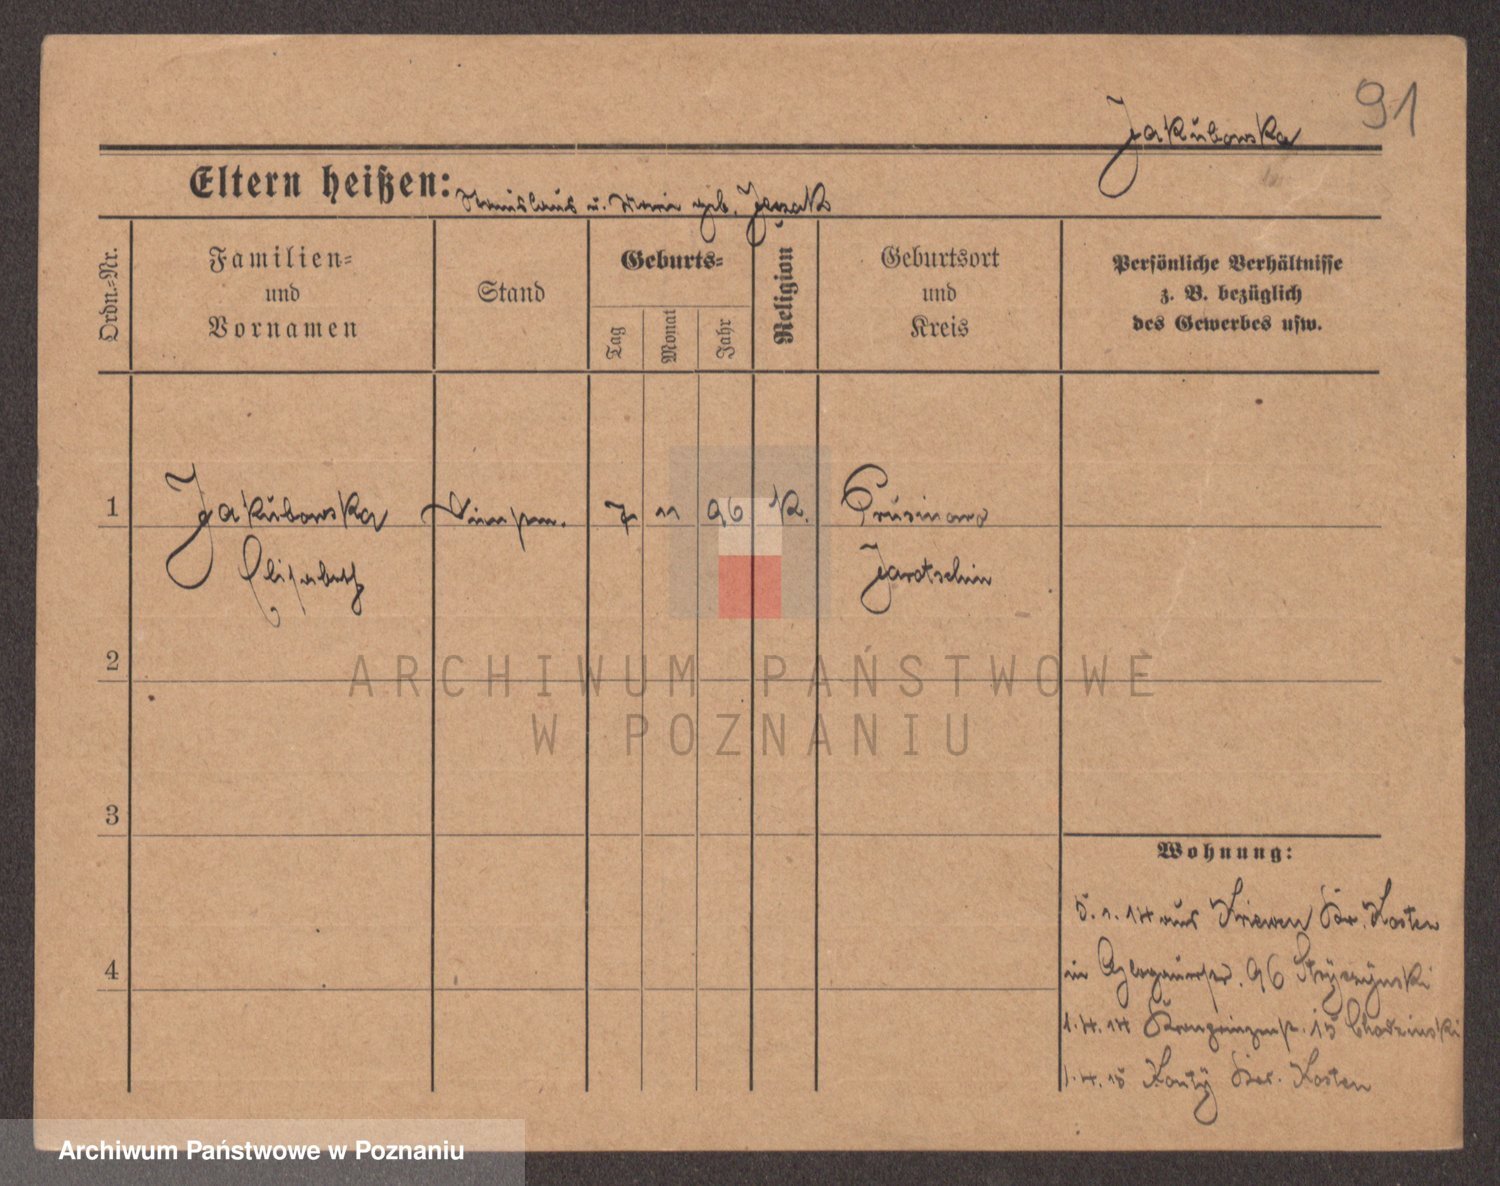 91
Jakubowska
Eltern heißen: Stanislaus u. Maria geb. Jezak
Ordn.-Nr.
Familien-
und
Vornamen
Stand
Geburts-
Tag
Monat
Jahr
Religion
Geburtsort
und
Kreis
Persönliche Verhältnisse
z. B. bezüglich
des Gewerbes usw.
1
Jakubowska
Elisabeth
7 11 96 K.
Prusinowo
Jarotschin
2
3
4
ARCHIWUM PAŃSTWOWE
W POZNANIU
Wohnung:
5.1.14 aus Kriewen Kr. Kosten
in Glogauerstr. 96
1.4.14 Kronprinzenstr. 15
1.4.15 Konty Kr. Kosten
Archiwum Państwowe w Poznaniu